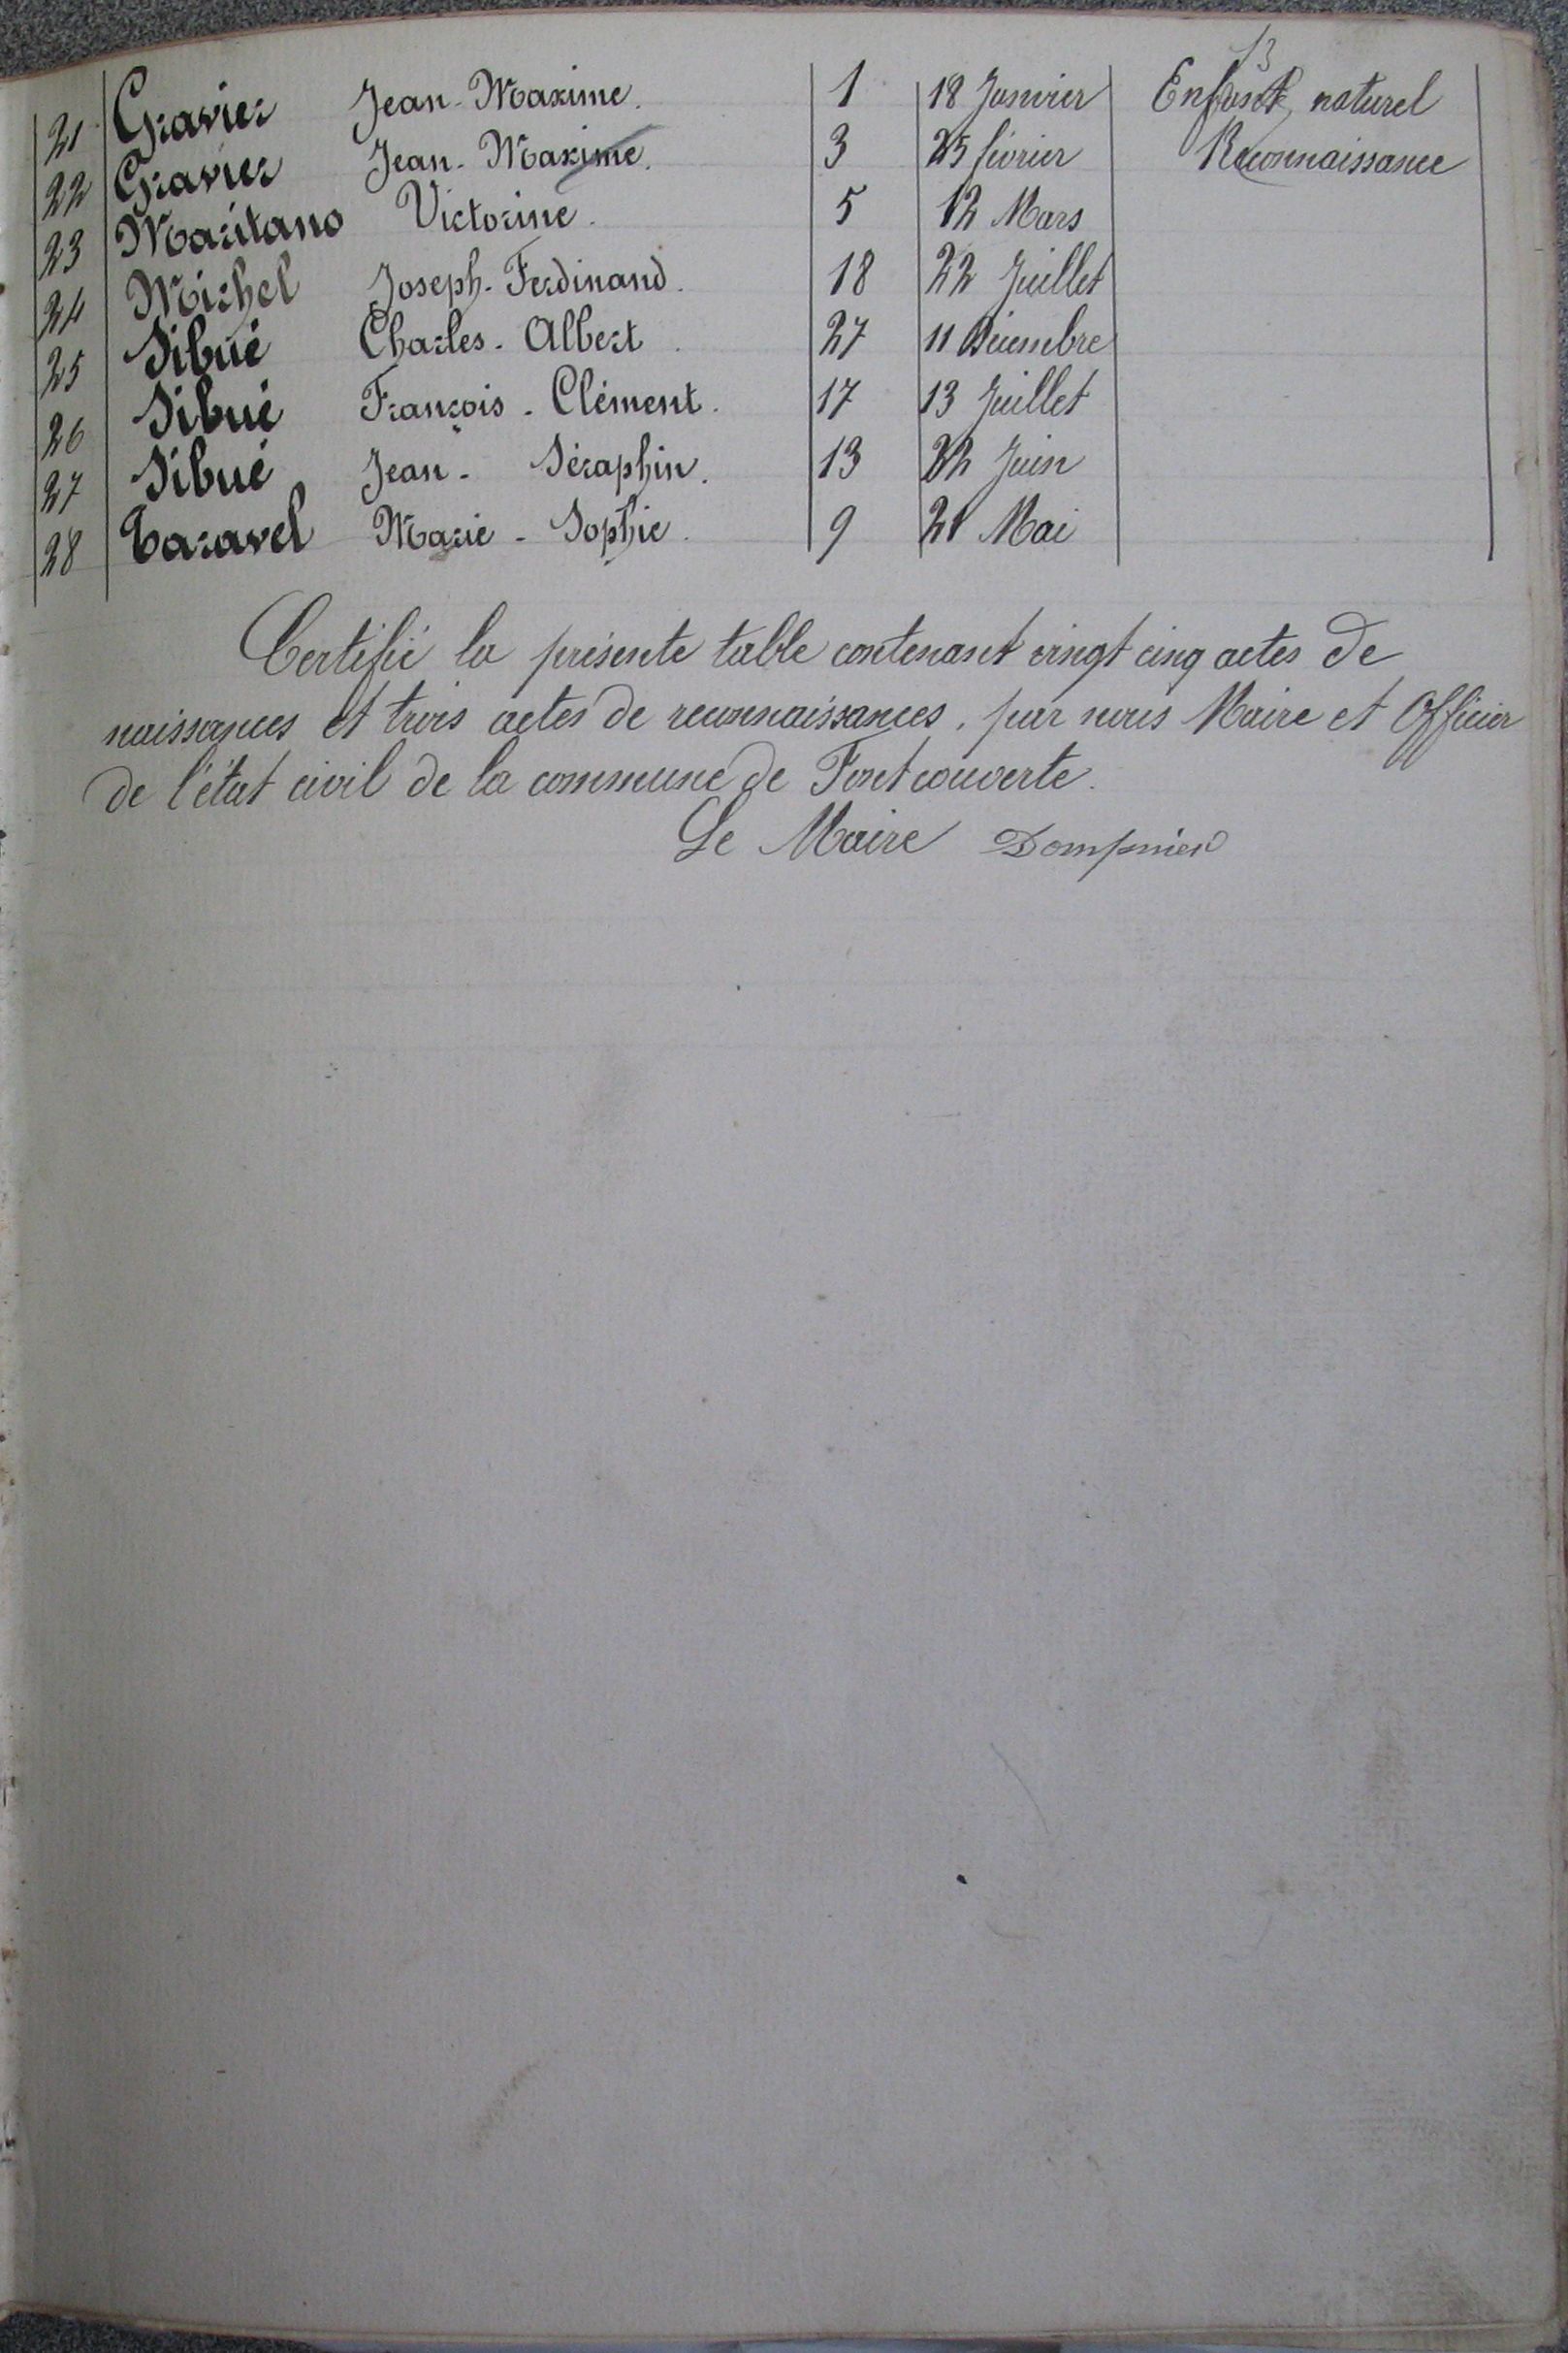 13
21 Gravier Jean-Maxime. 1 18 Janvier Enfant naturel
22 Gravier Jean-Maxime. 3 25 février Reconnaissance
23 Maritano Victorine. 5 12 Mars
24 Michel Joseph-Ferdinand. 18 22 Juillet
25 Sibué Charles-Albert. 27 11 Décembre
26 Sibué François-Clément. 17 13 Juillet
27 Sibué Jean-Séraphin. 13 22 Juin
28 Taravel Marie-Sophie. 9 21 Mai
Certifié la présente table contenant vingt cinq actes de
naissances et trois actes de reconnaissances, par nous Maire et Officier
de l'état civil de la commune de Fontcouverte.
Le Maire Dompnier